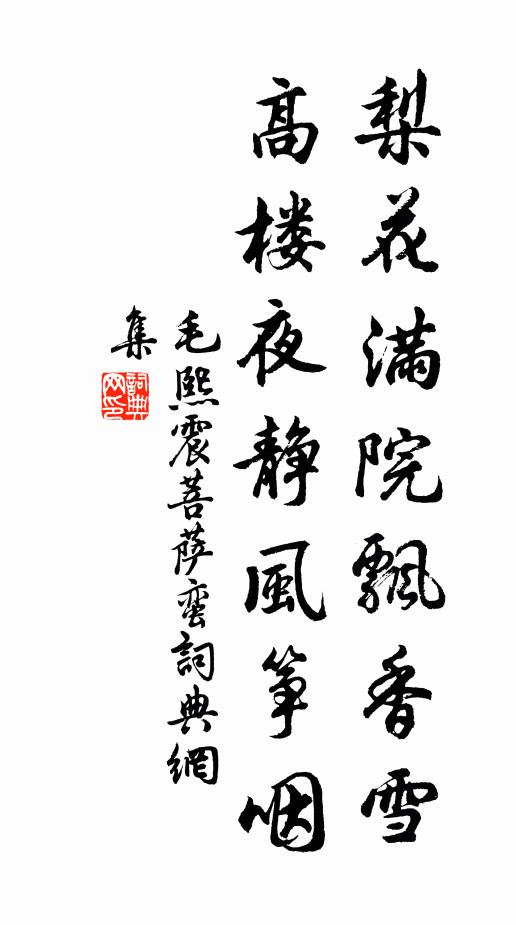 梨花满院飘香雪
高楼夜静風筝咽
毛熙震菩萨蛮詞典網
集
詞典
网印